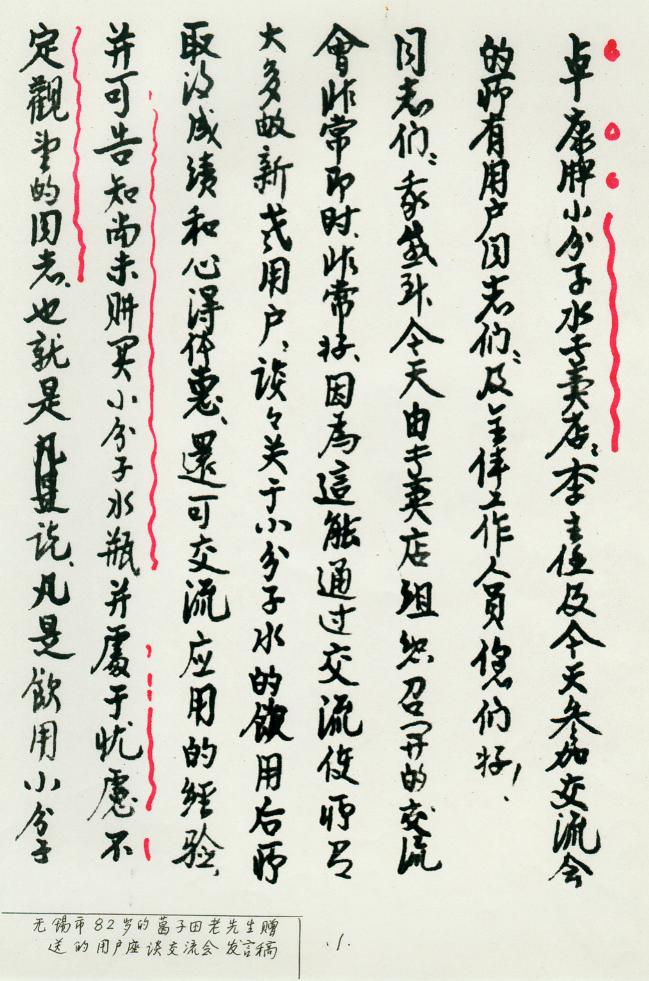 卓康牌小分子水专卖店：李主任及今天参加交流会
的所有用户同志们、及全体工作人员您们好！
同志们：我感到今天由专卖店组织召开的交流
會非常即时、非常好、因為這能通过交流使所有
大多數新老用户：谈々关于小分子水的饮用后所
取得成绩和心得体惠、還可交流应用的經验、
并可告知尚未购买小分子水瓶并處于忧慮不
定觀望的同志、也就是说、凡是飲用小分子
无锡市82岁的葛子田老先生赠
送的用户座谈交流会发言稿
.1.